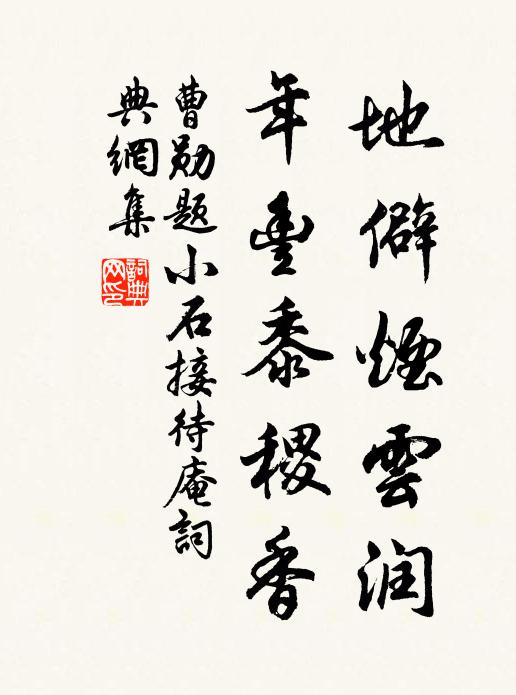 地僻煙雲润
年豊黍稷香
曹勛题小石接待庵詞
典網集
詞典
网印